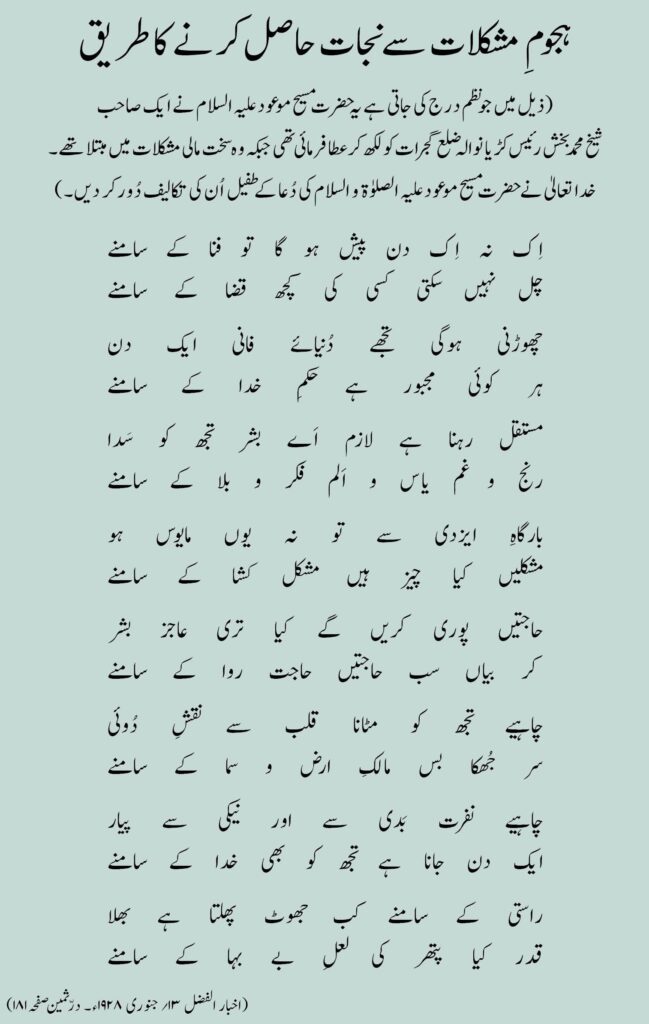 ہجومِ مشکلات سے نجات حاصل کرنے کا طریق
(ذیل میں جو نظم درج کی جاتی ہے یہ حضرت مسیح موعود علیہ السلام نے ایک صاحب
شیخ محمد بخش رئیس کڑیانوالہ ضلع گجرات کو لکھ کر عطا فرمائی تھی جبکہ وہ سخت مالی مشکلات میں مبتلا تھے۔
خدا تعالیٰ نے حضرت مسیح موعود علیہ الصلوٰۃ والسلام کی دُعا کے طفیل اُن کی تکالیف دُور کر دیں۔)
اِک نہ اِک دن پیش ہو گا تو فنا کے سامنے
چل نہیں سکتی کسی کی کچھ قضا کے سامنے
چھوڑنی ہوگی تجھے دُنیائے فانی ایک دن
ہر کوئی مجبور ہے حکمِ خدا کے سامنے
مستقل رہنا ہے لازم اَے بشر تجھ کو سَدا
رنج و غم یاس و اَلم فکر و بلا کے سامنے
بارگاہِ ایزدی سے تو نہ یوں مایوس ہو
مشکلیں کیا چیز ہیں مشکل کشا کے سامنے
حاجتیں پوری کریں گے کیا تری عاجز بشر
کر بیاں سب حاجتیں حاجت روا کے سامنے
چاہیے تجھ کو مٹانا قلب سے نقشِ دُوئی
سر جُھکا بس مالکِ ارض و سما کے سامنے
چاہیے نفرت بَدی سے اور نیکی سے پیار
ایک دن جانا ہے تجھ کو بھی خدا کے سامنے
راستی کے سامنے کب جھوٹ پھلتا ہے بھلا
قدر کیا پتھر کی لعلِ بے بہا کے سامنے
(اخبار الفضل ۱۳؍ جنوری ۱۹۲۸ء۔ درّثمین صفحہ ۱۸۱)